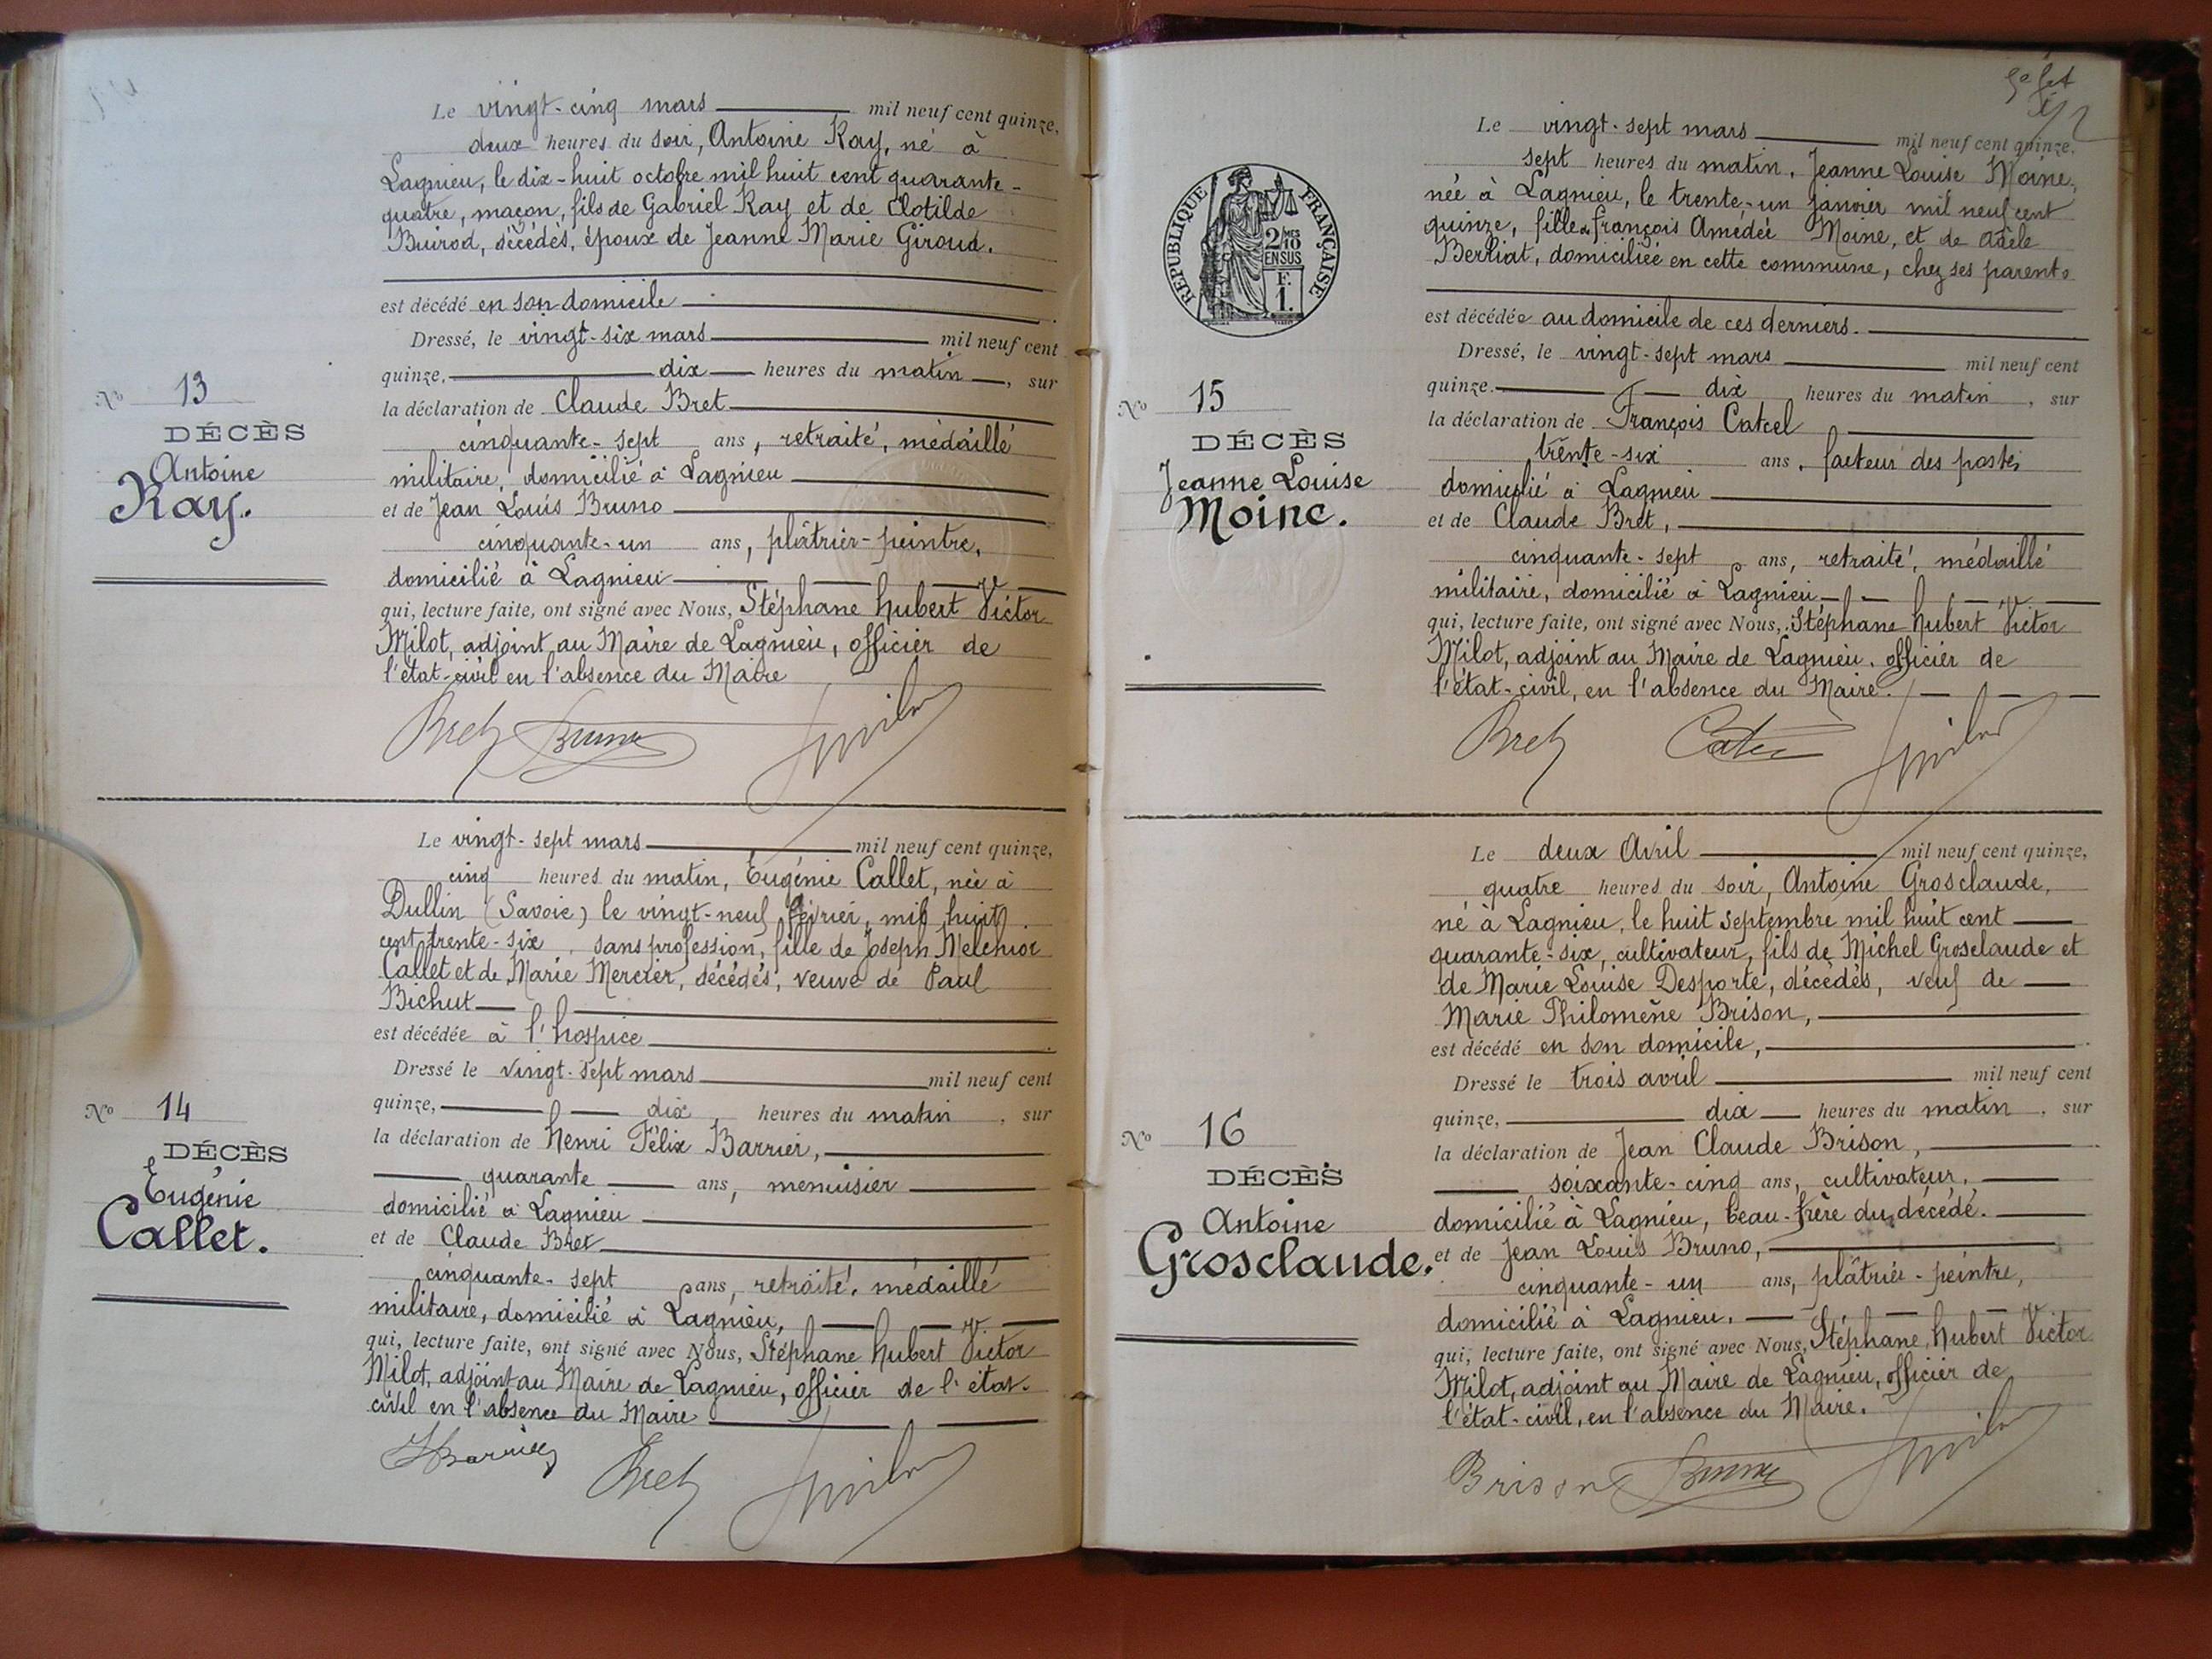 Le vingt-cinq mars mil neuf cent quinze,
deux heures du soir, Antoine Ray, né à
Lagnieu, le dix-huit octobre mil huit cent quarante-
quatre, maçon, fils de Gabriel Ray et de Clotilde
Buirod, décédés, époux de Jeanne Marie Giroud.
est décédé en son domicile
Dressé, le vingt-six mars mil neuf cent
quinze, dix heures du matin, sur
la déclaration de Claude Bret
cinquante-sept ans, retraité, médaillé
militaire, domicilié à Lagnieu
et de Jean Louis Bruno
cinquante-un ans, plâtrier-peintre,
domicilié à Lagnieu
qui, lecture faite, ont signé avec Nous, Stéphane Hubert Victor
Milot, adjoint au Maire de Lagnieu, officier de
l'état-civil en l'absence du Maire
Bret Bruno Milot
No 13
DÉCÈS
Antoine
Ray.
Le vingt-sept mars mil neuf cent quinze,
cinq heures du matin, Eugénie Callet, née à
Dullin (Savoie) le vingt-neuf février, mil huit
cent trente-six, sans profession, fille de Joseph Melchior
Callet et de Marie Mercier, décédés, veuve de Paul
Bichut
est décédée à l'hospice
Dressé le vingt-sept mars mil neuf cent
quinze, dix heures du matin, sur
la déclaration de Henri Félix Barrier,
quarante ans, menuisier
domicilié à Lagnieu
et de Claude Bret
cinquante-sept ans, retraité, médaillé
militaire, domicilié à Lagnieu,
qui, lecture faite, ont signé avec Nous, Stéphane Hubert Victor
Milot, adjoint au Maire de Lagnieu, officier de l'état-
civil en l'absence du Maire
HBarrier Bret Milot
No 14
DÉCÈS
Eugénie
Callet.
RÉPUBLIQUE FRANÇAISE
2/10MES
EN SUS
F.
1.
Le vingt-sept mars mil neuf cent quinze.
sept heures du matin, Jeanne Louise Moine,
née à Lagnieu, le trente-un janvier mil neuf cent
quinze, fille de françois Amédée Moine, et de Adèle
Berliat, domiciliée en cette commune, chez ses parents
est décédée au domicile de ces derniers.
Dressé, le vingt-sept mars mil neuf cent
quinze. dix heures du matin, sur
la déclaration de François Catcel
trente-six ans, facteur des postes
domicilié à Lagnieu
et de Claude Bret,
cinquante-sept ans, retraité, médaillé
militaire, domicilié à Lagnieu
qui, lecture faite, ont signé avec Nous, Stéphane Hubert Victor
Milot, adjoint au Maire de Lagnieu, officier de
l'état-civil, en l'absence du Maire.
Bret Milot
No 15
DÉCÈS
Jeanne Louise
Moine.
Le deux Avril mil neuf cent quinze,
quatre heures du soir, Antoine Grosclaude,
né à Lagnieu, le huit septembre mil huit cent
quarante-six, cultivateur, fils de Michel Grosclaude et
de Marie Louise Desporte, décédés, veuf de
Marie Philomène Brison,
est décédé en son domicile,
Dressé le trois avril mil neuf cent
quinze, dix heures du matin, sur
la déclaration de Jean Claude Brison,
soixante-cinq ans, cultivateur,
domicilié à Lagnieu, beau-frère du décédé.
et de Jean Louis Bruno,
cinquante-un ans, plâtrier-peintre,
domicilié à Lagnieu.
qui, lecture faite, ont signé avec Nous, Stéphane Hubert Victor
Milot, adjoint au Maire de Lagnieu, officier de
l'état-civil, en l'absence du Maire.
Brison Bruno Milot
No 16
DÉCÈS
Antoine
Grosclaude.